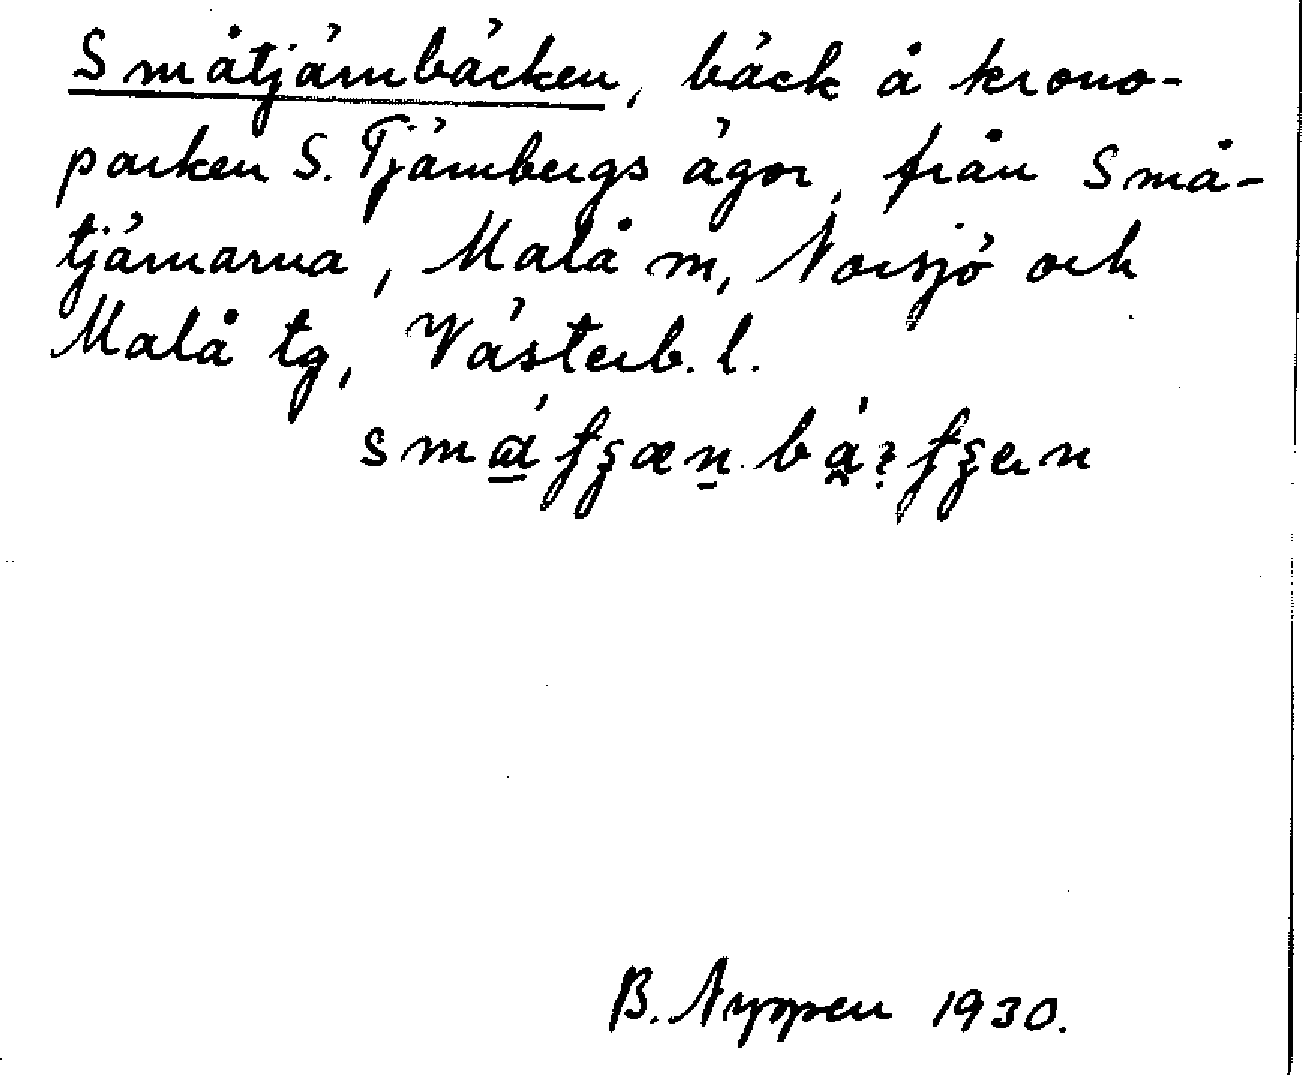 Småtjärnbäcken, bäck å krono-
parken S. Tjärnbergs ägor, från Små-
tjärnarna, Malå m, Norsjö och
Malå tg, Västerb. l.
B. Nyppen 1930.